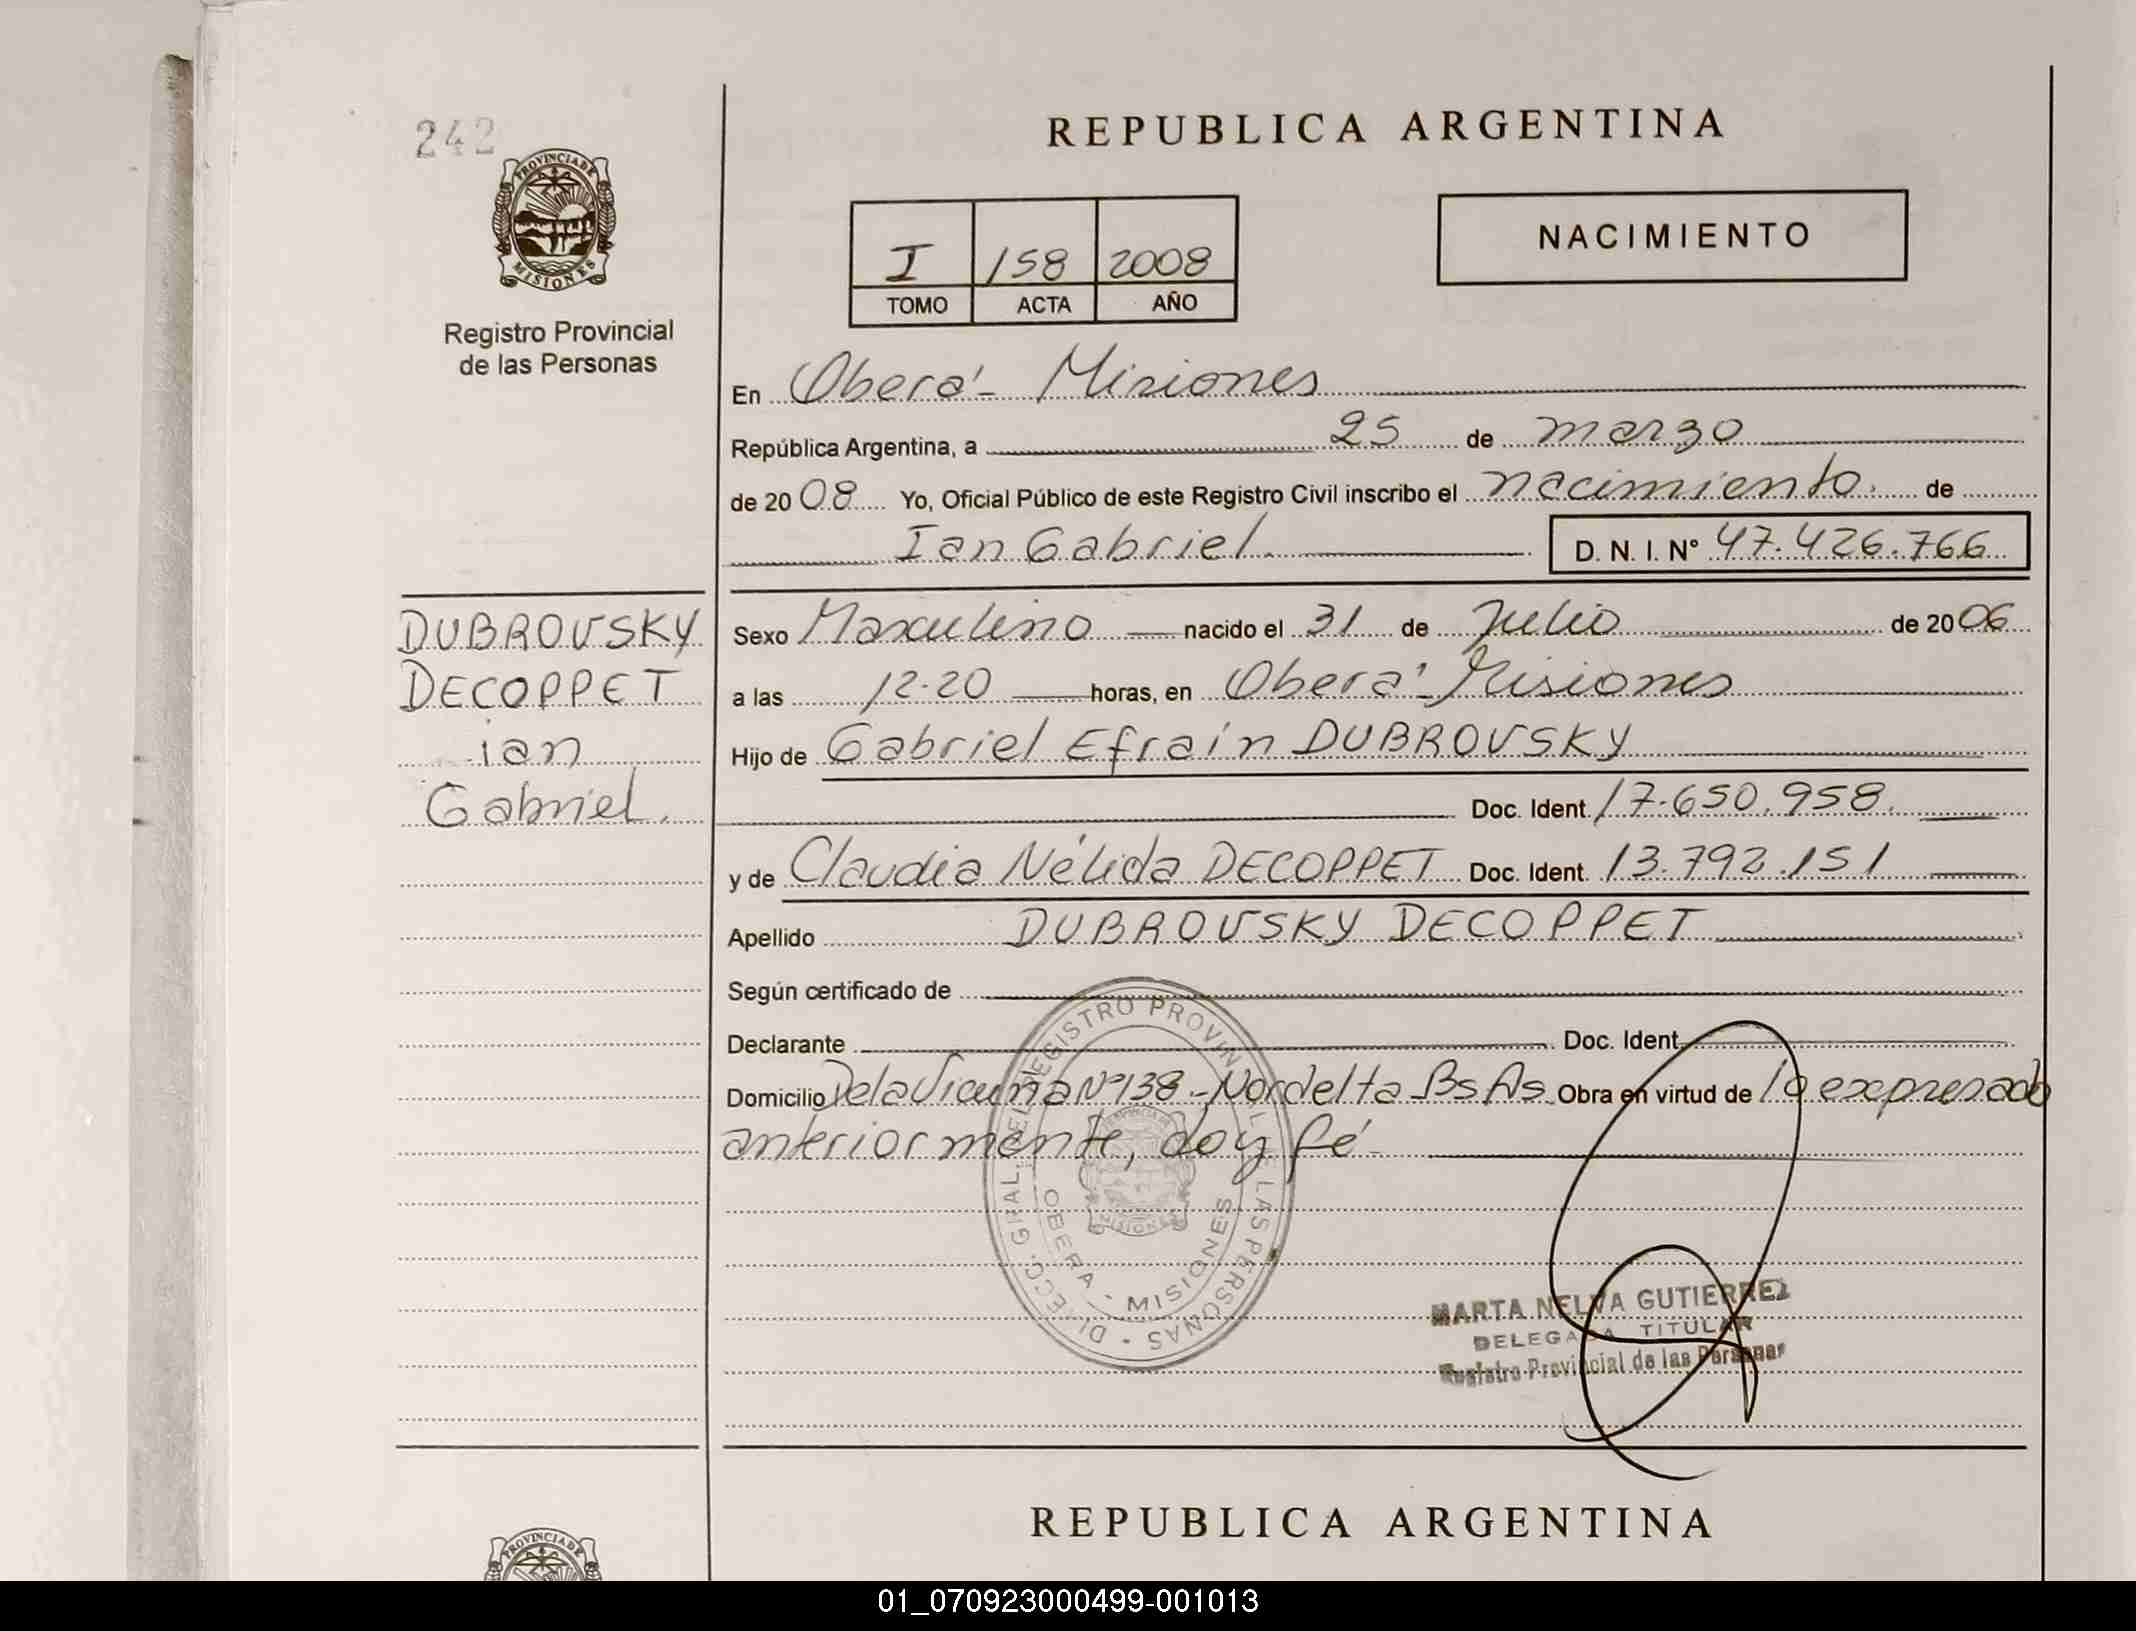 242
PROVINCIA DE
MISIONES
Registro Provincial
de las Personas
REPUBLICA ARGENTINA
I 158 2008
TOMO ACTA AÑO
NACIMIENTO
En Oberá - Misiones
República Argentina, a 25 de marzo
de 2008 Yo, Oficial Público de este Registro Civil inscribo el nacimiento. de
Ian Gabriel. D. N. I. N° 47.426.766
DUBROVSKY
DECOPPET
ian
Gabriel.
Sexo Masculino nacido el 31 de Julio de 2006
a las 12.20 horas, en Oberá - Misiones
Hijo de Gabriel Efraín DUBROVSKY
Doc. Ident. 17.650.958.
y de Claudia Nélida DECOPPET Doc. Ident. 13.792.151
Apellido DUBROVSKY DECOPPET
Según certificado de
Declarante Doc. Ident.
Domicilio De la Vicuña N° 138 - Nordelta Bs As Obra en virtud de lo expresado
anteriormente, doy fé
DIRECC. GRAL. DEL REGISTRO PROVINCIAL DE LAS PERSONAS
OBERA - MISIONES
MISIONES
MARTA NELVA GUTIERREZ
DELEGADA TITULAR
Registro Provincial de las Personas
REPUBLICA ARGENTINA
PROVINCIA DE
01_070923000499-001013